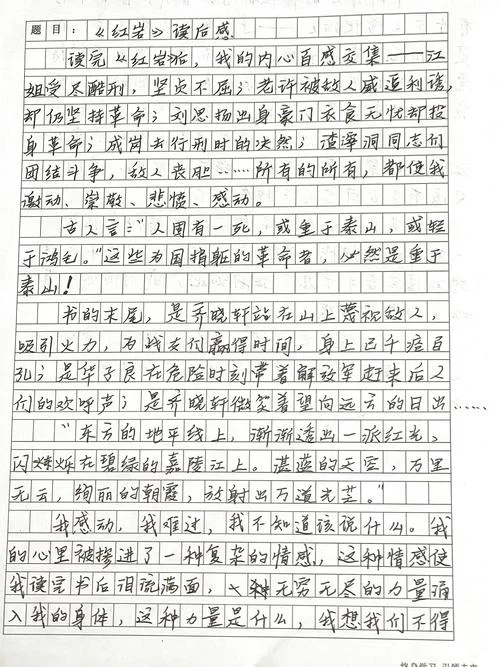 题目：《红岩》读后感
读完《红岩》后，我的内心百感交集——江
姐受尽酷刑，坚贞不屈；老许被敌人威逼利诱，
却仍坚持革命；刘思扬出身豪门衣食无忧却投
身革命；成岗去行刑时的决然；渣滓洞同志们
团结斗争，敌人丧胆……所有的所有，都使我
激动、崇敬、悲愤、感动。
古人言："人固有一死，或重于泰山，或轻
于鸿毛。"这些为国捐躯的革命者，必然是重于
泰山！
书的末尾，是齐晓轩站在山上蔑视敌人，
吸引火力，为战友们赢得时间，身上已千疮百
孔；是华子良在危险时刻带着解放军赶来后人
们的欢呼声；是齐晓轩微笑着望向远方的日出……
"东方的地平线上，渐渐透出一派红光，
闪烁在碧绿的嘉陵江上。湛蓝的天空，万里
无云，绚丽的朝霞，放射出万道光芒。"
我感动，我难过，我不知道该说什么。我
的心里被掺进了一种复杂的情感，这种情感使
我读完书后泪流满面，一种无穷无尽的力量涌
入我的身体，这种力量是什么，我想我们不得
终身学习 引领未来